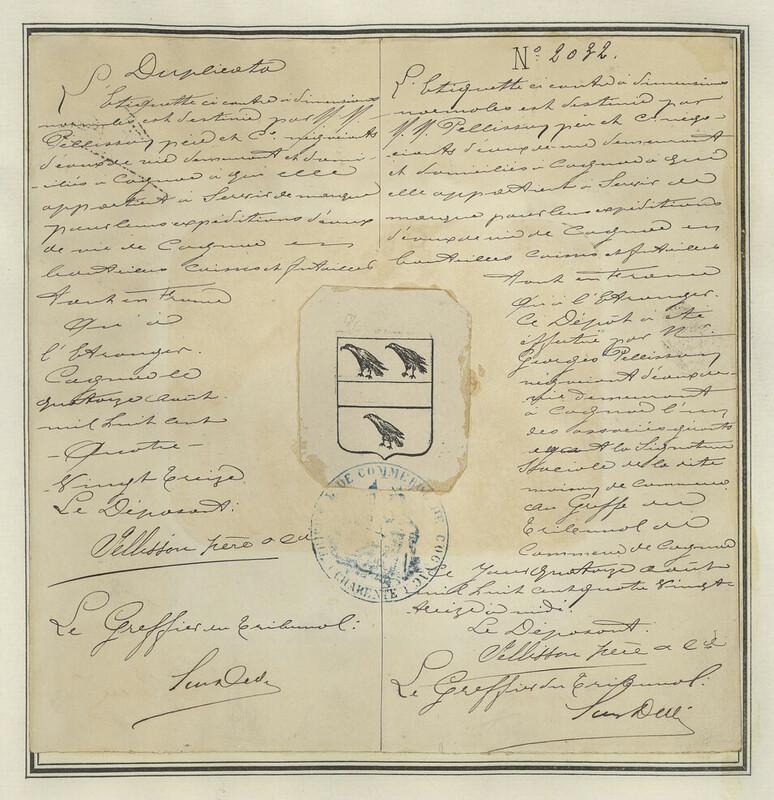 Duplicata
L'étiquette ci contre à dimensions
normales est destinée par M M
Pellisson père et Cie négociants
d'eaux de vie demeurant et domi-
-ciliés à Cognac à qui elle
appartient à Servir de marque
pour leurs expéditions d'eaux
de vie de Cognac en
bouteilles caisses et futailles
tant en France
Qu'à
l'Etranger.
Cognac le
quatorze août
mil huit cent
- Quatre -
Vingt treize.
Le Déposant:
Pellisson père & Cie
Le Greffier du Tribunal:
No. 2032.
L'étiquette ci contre à dimensions
normales est destinée par
M M Pellisson père et Cie négo-
ciants d'eaux de vie demeurant
et domiciliés à Cognac à qui
elle appartient à Servir de
marque pour leurs expéditions
d'eaux de vie de Cognac en
bouteilles caisses et futailles
tant en France
Qu'à l'Etranger.
Ce Dépôt à été
effectué par Mr.
Georges Pellisson
négociant d'eaux de
vie demeurant
à Cognac l'un
des associés ayants
la Signature
Sociale de la dite
maison de Commerce
au Greffe du
Tribunal de
Commerce de Cognac
le Jour quatorze août
mil huit cent quatre vingt
treize à midi.
Le Déposant.
Pellisson père & Cie
Le Greffier du Tribunal:
TRIBUNAL DE COMMERCE DE COGNAC
(CHARENTE)